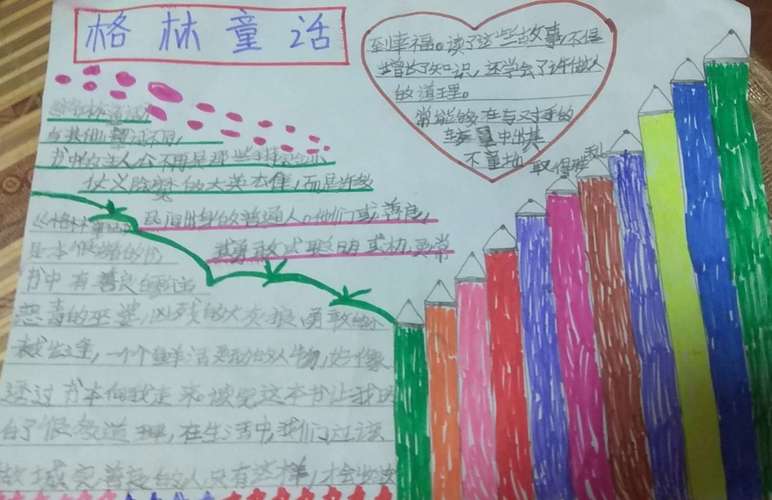 格林童话
《格林童话》
与其他童话不同,
书中的主人公不再是那些
仗义除
的大英
,而是许许
民间
的普通人。他们或善良,
或勇敢或聪明或机灵常
常能够在与对手的
较量中出其
不意地
取得胜利
《格林童话》
是本很
的书
书中有善良的
恶毒的巫婆,凶残的大灰狼,勇敢的小
裁缝,一个个鲜活灵动的人物,好像
透过书本向我走来。读完这本书让我明
白了很多道理,在生活中,我们应该
做诚实善良的人只有这样,才会
到幸福。读了这些故事不仅
增长了知识,还学会了许做人
的道理。